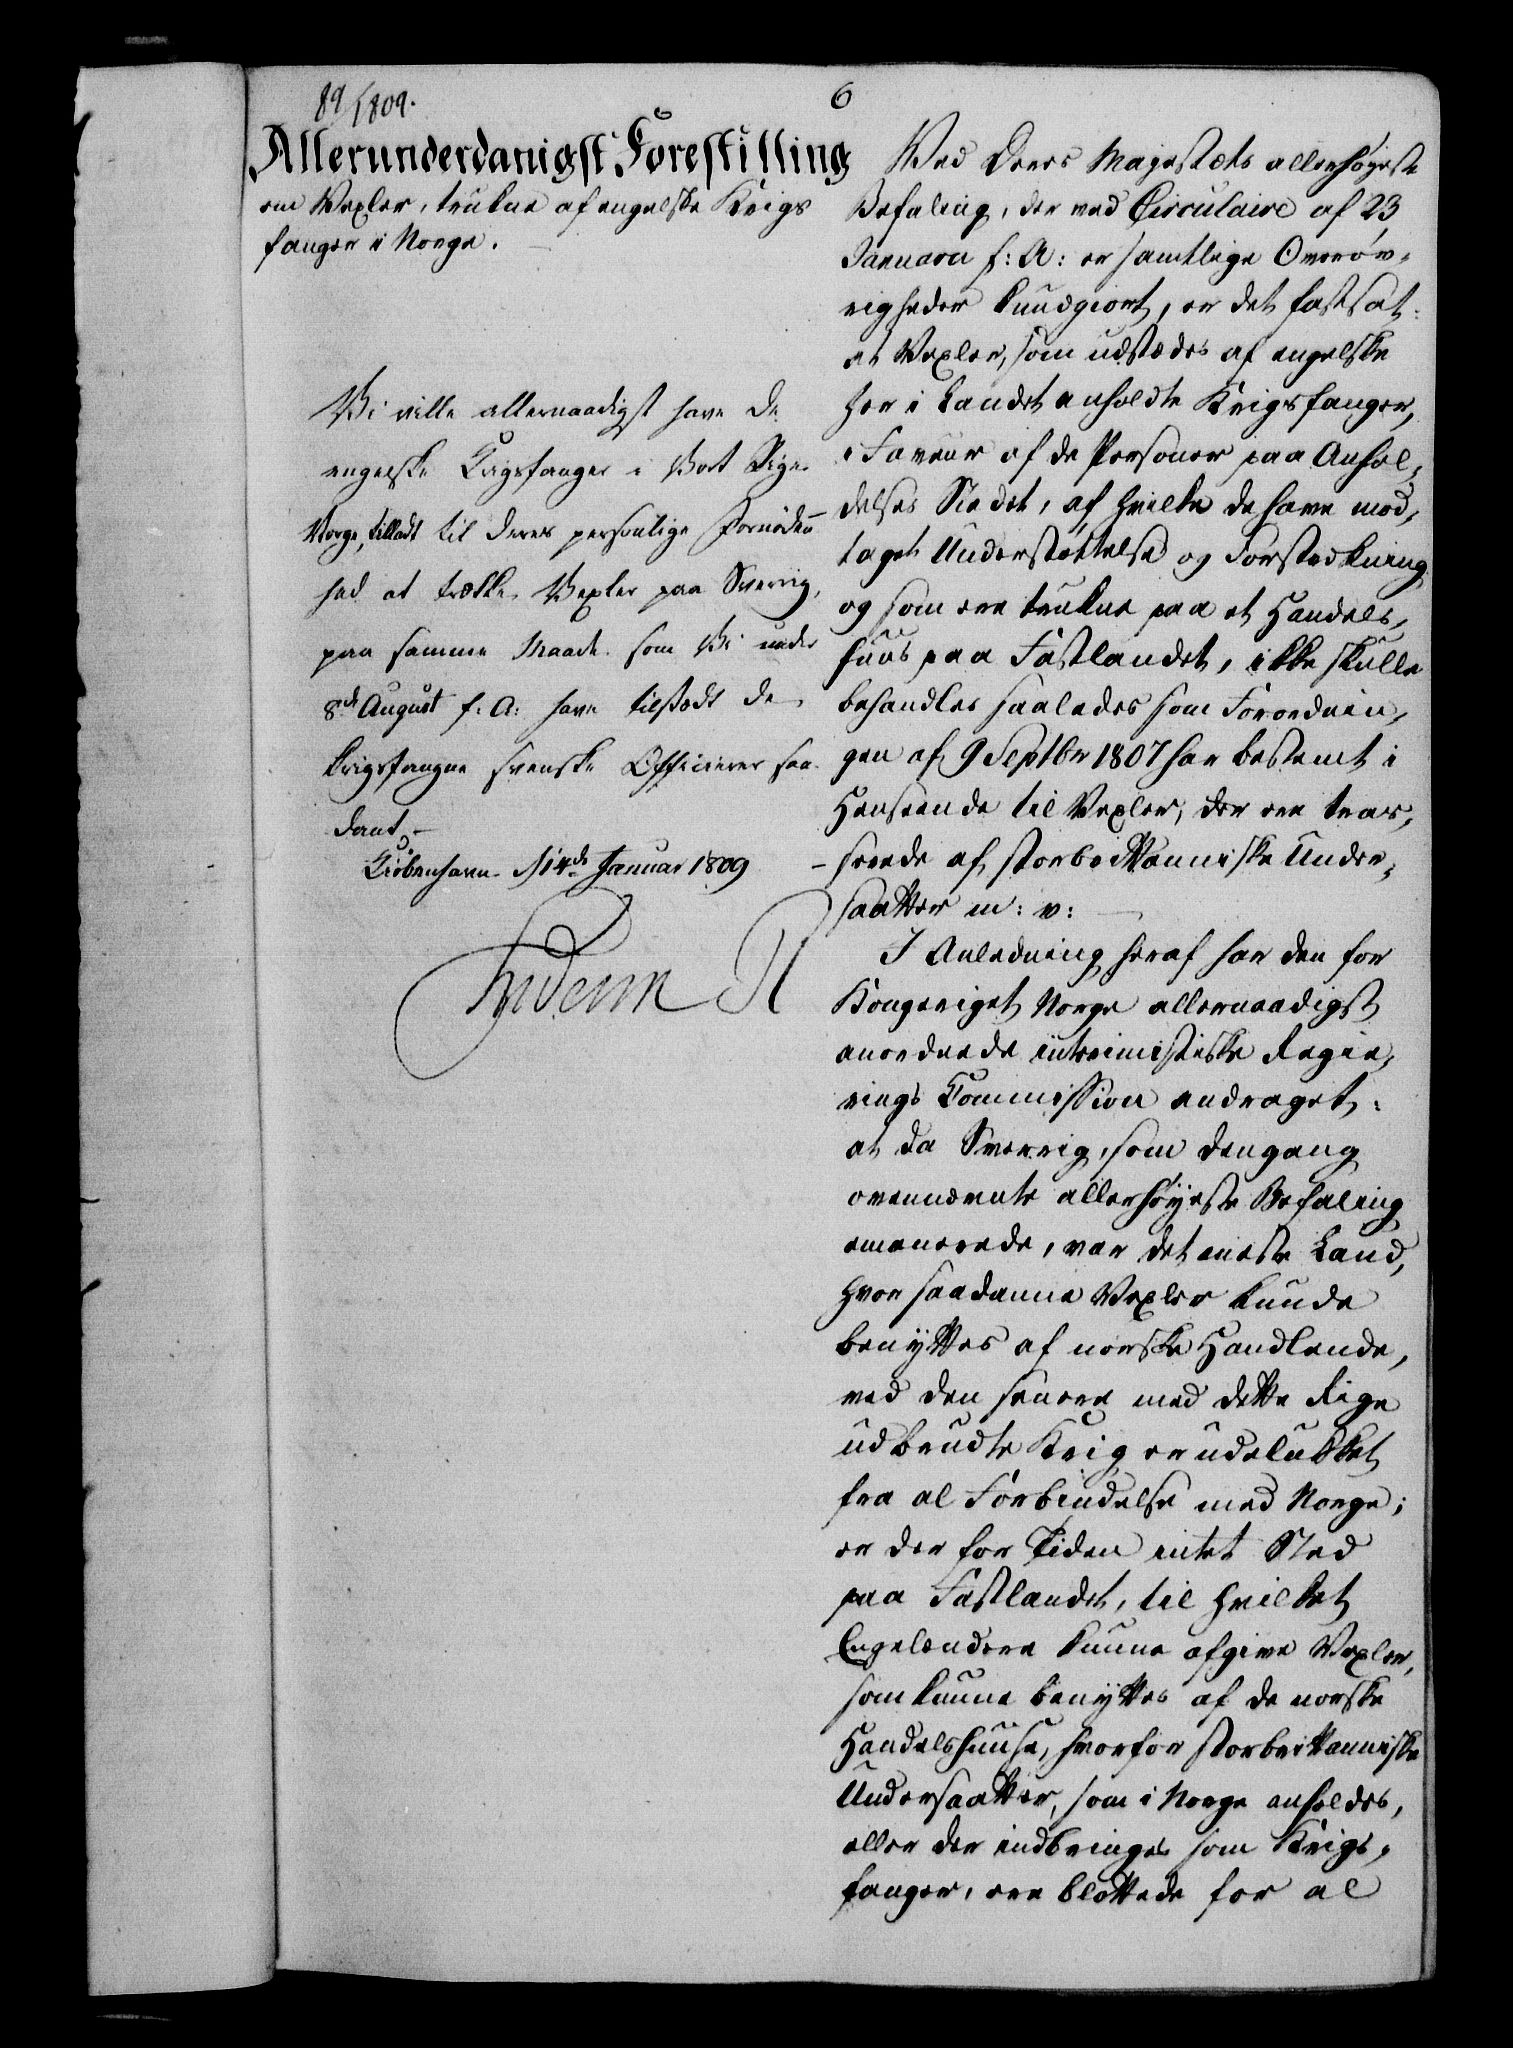 89/1809.
6
Allerunderdanigst Forestilling
om Vexler, trukne af engelske Krigs
fanger i Norge.
Vi ville allernaadigst have de
engelske Krigsfanger i Vort Rige
Norge, tilladt til deres personlige Fornöden
hed at trække Vexler paa Sverrig,
paa samme Maade som Vi under
8de August f: A: have tilstædt de
krigsfangne svenske Officierer saa-
dant,
Kiöbenhavn d 14de Januar 1809
Friderich R
Ved Deres Majestæts allerhöyeste
Befaling, der ved Circulaire af 23
Januarii f: A: er samtlige Overöv-
righeder kundgiort, er det fastsat:
at Vexler, som udstædes af engelske
her i Landet anholdte Krigsfanger,
i Faveur af de Personer paa Anhol-
delses Stedet, af hvilke de have mod-
taget Understöttelse og Forstrækning
og som ere trukne paa et Handels-
huus paa Fastlandet, ikke skulle
behandles saaledes som Forordnin-
gen af 9 Septbr 1807 har bestemt i
Henseende til Vexler, der ere tras-
serede af storbrittanniske Under-
saatter m: v:
I Anledning heraf har den for
Kongeriget Norge allernaadigst
anordnede interimistiske Regie-
rings Commission andraget:
at da Sverrig, som dengang
ovennævnte allerhöyeste Befaling
emanerede, var det eneste Land,
hvor saadanne Vexler kunde
benyttes af norske Handlende,
ved den senere med dette Rige
udbrudte Krig er udelukket
fra al Forbindelse med Norge;
er der for Tiden intet Sted
paa Fastlandet, til hvilket
Engelændere kunne afgive Vexler,
som kunne benyttes af de norske
Handelshuuse, hvorfor storbrittanniske
Undersaatter, som i Norge anholdes,
eller der indbringes som Krigs-
fanger, ere blottede for al